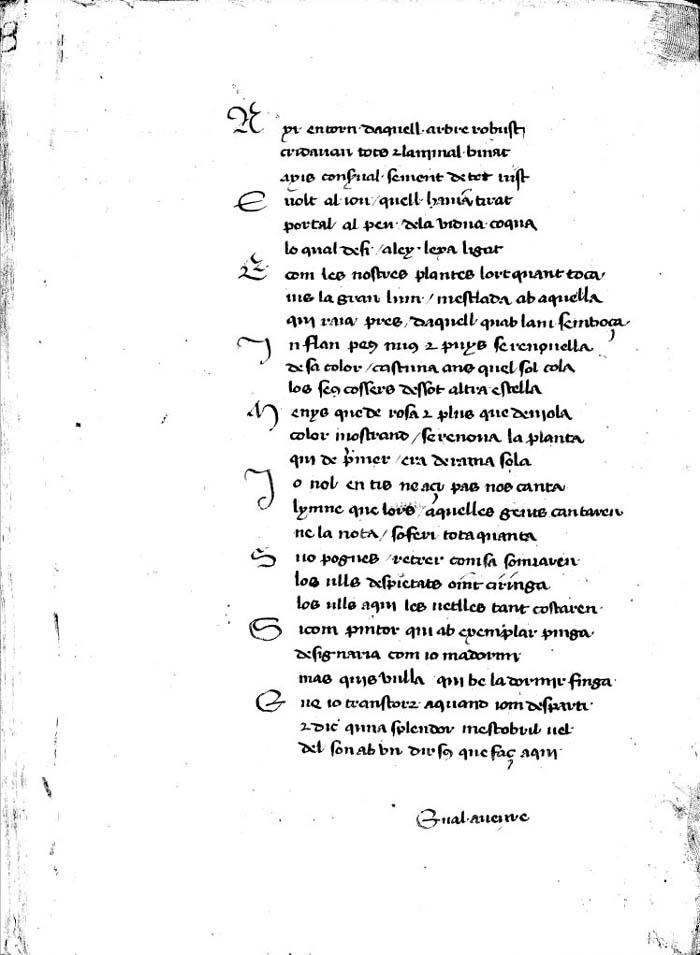 A xi entorn · daquell · arbre robust
cridauan tots 2 lanimal · binat
axis conserual · sement de tot iust
E uolt al iou / quell hauia tirat
portal al peu · dela vidua coqua
lo qual desi / aley · lexa ligat
E com les nostres plantes lort quant toca
ius la gran lum / mesclada ab aquella
qui raia pres / daquell · quab laui semboça ·
I nflan pens mus 2 puys se renouella
de sa color / castuna ans quel sol cola
los seus cossers dessot altra estella
M enys que de rosa 2 plus que deuiola
color mostrand / se renoua la planta
qui de primer / era de rama sola
I o nol entis ne açi pas nos canta
lymne que lors aquelles gens cantaren
ne la nota / soferi tota quanta
S uo pogues / retrer com sa somiaren
los ulls despietats oint ciringa
los ulls aqui les uetlles tant costaren ·
S icom pintor qui ab exemplar pinga ·
designaria com io madormi
mas quis vulla qui be la dormir finga ·
Q ue io transtorz aquand iom desparti ·
2 dich quna splendor mestobril uel
del son ab vn dir sus que faç aqui ·
Qual · auenre